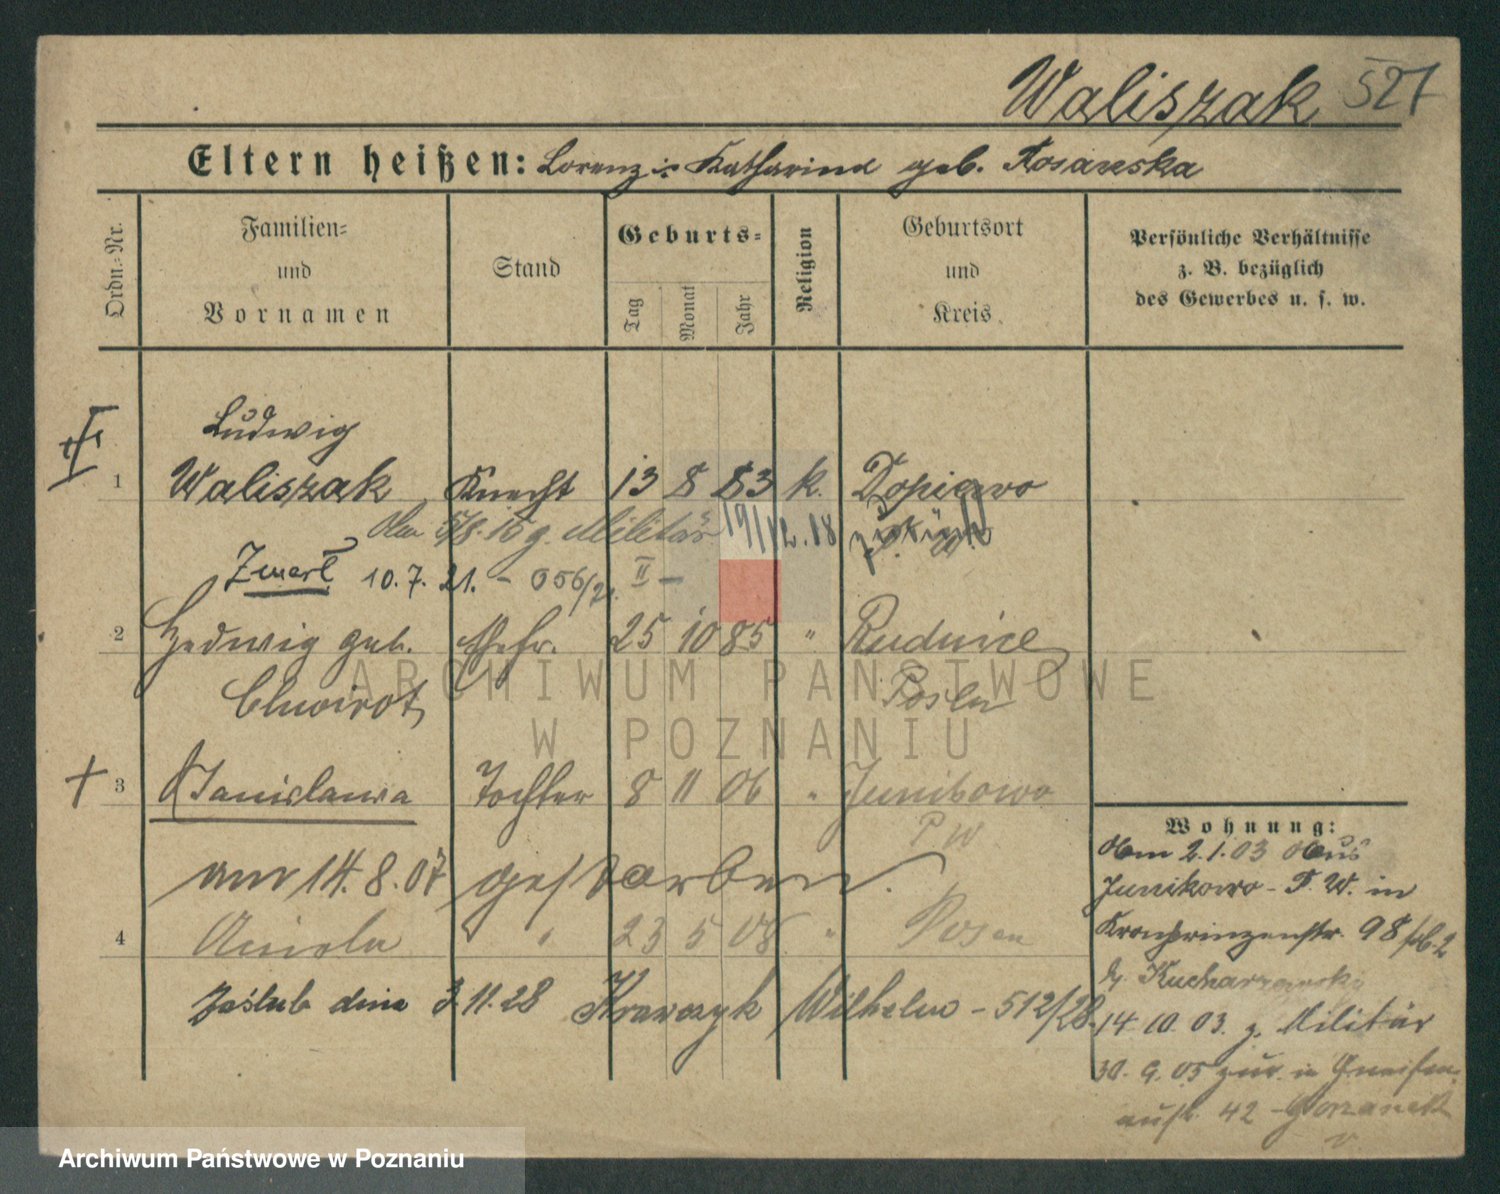 Waliszak 527
Eltern heißen: Lorenz u. Katharina geb.
Ordn.=Nr.
Familien=
und
Vornamen
Stand
Geburts=
Tag
Monat
Jahr
Religion
Geburtsort
und
Kreis
Persönliche Verhältnisse
z. B. bezüglich
des Gewerbes u. s. w.
Ludwig
1 Waliszak Knecht 13 8 83 k. Dopiewo
5/8.15 z. Militär 19/12.18 zurück
Zmarł 10.7.21. - 656/21. II -
2 Hedwig geb. Ehefr. 25 10 85 " Rudnice
Chwirot Posen
ARCHIWUM PAŃSTWOWE
W POZNANIU
3 Stanislawa Tochter 8 11 06 " Junikowo
P W.
am 14.8.07 gestorben.
4 Aniela " 23 5 08 " Posen
Zaślub dnia 3.11.28 Krawczyk Wilhelm - 512/28.
Wohnung:
Am 2.1.03 aus
Junikowo - P. W. in
Kronprinzenstr. 98
Kucharzewski
14.10.03. z. Militär
30.9.05 zur. in Gneisen
austr. 42
Archiwum Państwowe w Poznaniu